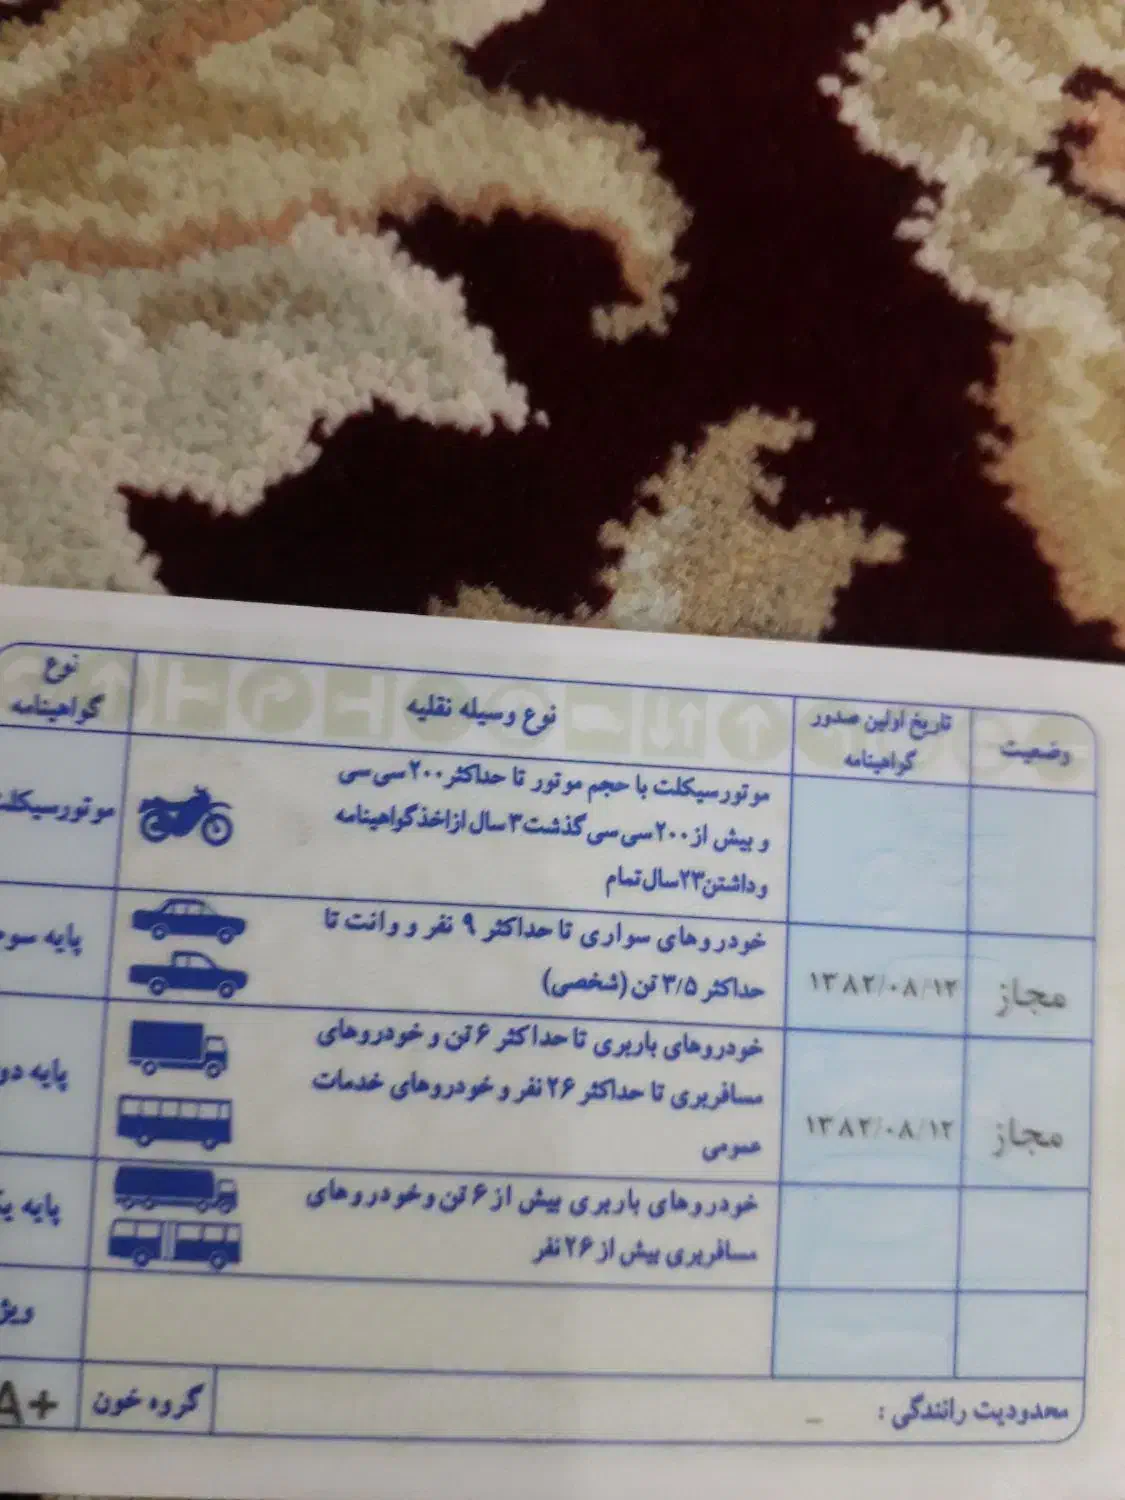 وضعیت
تاریخ اولین صدور
گواهینامه
نوع وسیله نقلیه
نوع
گواهینامه
موتورسیکلت با حجم موتور تا حداکثر ۲۰۰ سی سی
و بیش از ۲۰۰ سی سی گذشت ۳ سال از اخذ گواهینامه
و داشتن ۲۳ سال تمام
موتورسیکلت
مجاز
۱۳۸۲/۰۸/۱۲
خودروهای سواری تا حداکثر ۹ نفر و وانت تا
حداکثر ۳/۵ تن (شخصی)
پایه سوم
مجاز
۱۳۸۲/۰۸/۱۲
خودروهای باربری تا حداکثر ۶ تن و خودروهای
مسافربری تا حداکثر ۲۶ نفر و خودروهای خدمات
عمومی
پایه دو
خودروهای باربری بیش از ۶ تن و خودروهای
مسافربری بیش از ۲۶ نفر
پایه یک
ویژ
محدودیت رانندگی : –
گروه خون
A+